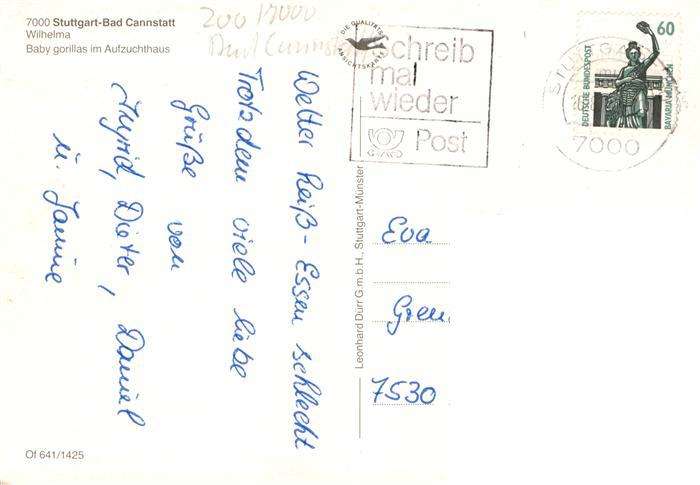 7000 Stuttgart-Bad Cannstatt
Wilhelma
Baby gorillas im Aufzuchthaus
200 7000
Bad Cannstatt
DIE QUALITÄTS
ANSICHTSKARTE
schreib
mal
wieder
Post
60
DEUTSCHE BUNDESPOST
BAVARIA MÜNCHEN
7000
Wetter heiß - Essen schlecht
Trotzdem viele liebe
Grüße von
Dieter, Daniel
u. Janine
Leonhard Durr G.m.b.H., Stuttgart-Münster
Eva
7530
Of 641/1425